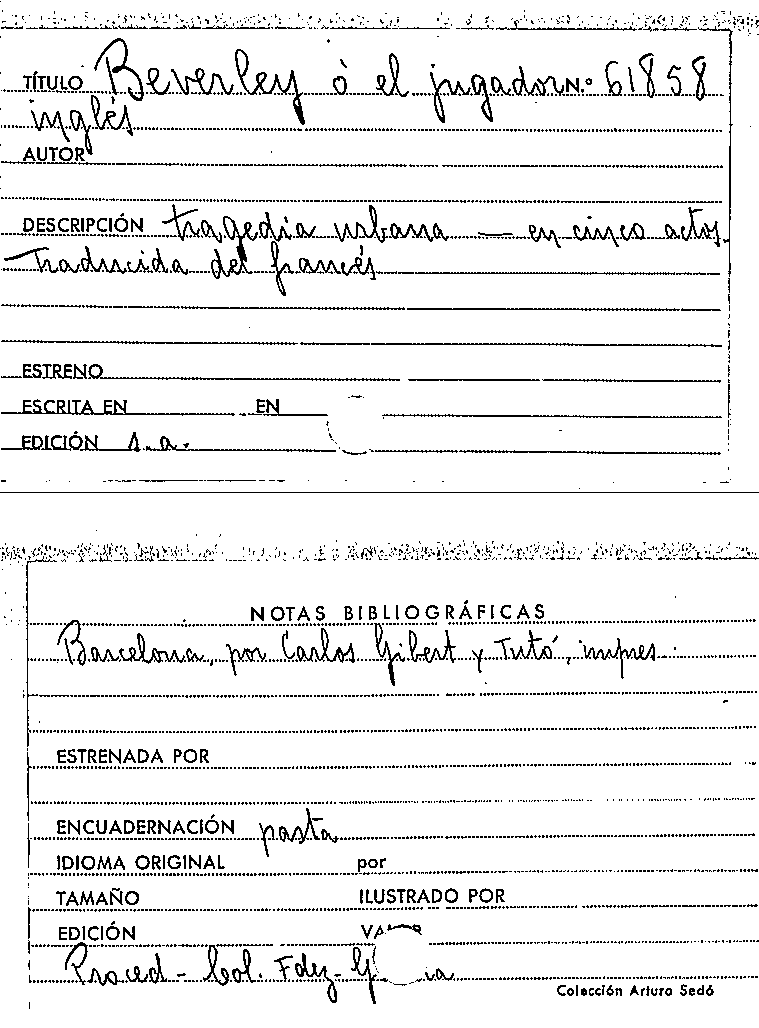 TÍTULO Beverley ò el jugador N.º 61858
inglés
AUTOR
DESCRIPCIÓN tragedia urbana — en cinco actos.
Traducida del francés
ESTRENO
ESCRITA EN EN
EDICIÓN s.a.
NOTAS BIBLIOGRÁFICAS
Barcelona, por Carlos Gibert y Tutó, impres.
ESTRENADA POR
ENCUADERNACIÓN pasta
IDIOMA ORIGINAL por
TAMAÑO ILUSTRADO POR
EDICIÓN
Proced - Col. Fdez-
Colección Arturo Sedó